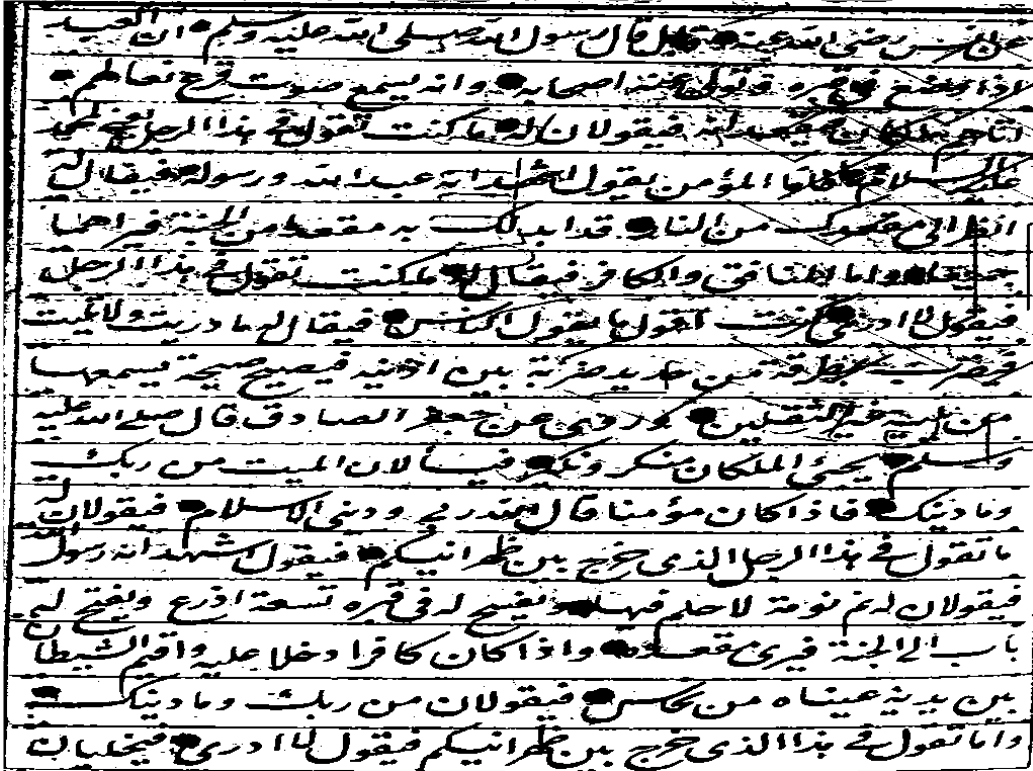 عن انس رضی الله عنه قال قال رسول الله صلی الله علیه وسلم ان العبد
اذا وضع فی قبره وتولی عنه اصحابه وانه یسمع صوت قرع نعالهم
اتاهم ملکان فیقعدانه فیقولان له ما کنت تقول فی هذا الرجل یعنی محمد
علیه السلام فاما المؤمن یقول اشهد انه عبد الله ورسوله فیقال له
انظر الی مقعدک من النار قد ابدلک به مقعدا من الجنة فیراهما
جمیعا واما المنافق والکافر فیقال له ما کنت تقول فی هذا الرجل
فیقول لا ادری کنت اقول ما یقول الناس فیقال له ما دریت ولا تلیت
فیضرب بمطرقة من حدید ضربة بین اذنیه فیصیح صیحة یسمعها
من یلیه غیر الثقلین وروی عن جعفر الصادق قال صلی الله علیه
وسلم یجئ الملکان منکر ونکیر فیسألان المیت من ربک
وما دینک فاذا کان مؤمنا قال الله ربی ودینی الاسلام فیقولان له
ما تقول فی هذا الرجل الذی خرج بین ظهرانیکم فیقول اشهد انه رسول الله
فیقولان له نم نومة لا حلم فیها ویفسح له فی قبره تسعة اذرع ویفتح له
باب الی الجنة فیری مقعده واذا کان کافرا دخلا علیه واقیم الشیطان
بین یدیه عیناه من نحاس فیقولان من ربک وما دینک
واما تقول فی هذا الذی خرج بین ظهرانیکم فیقول لا ادری فیخلیان